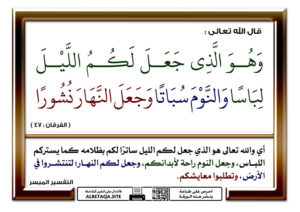 قال الله تعالى :
وَهُوَ الَّذِي جَعَلَ لَكُمُ اللَّيْلَ
لِبَاسًا وَالنَّوْمَ سُبَاتًا وَجَعَلَ النَّهَارَ نُشُورًا
( الفرقان : ٤٧ )
أي والله تعالى هو الذي جعل لكم الليل ساترًا لكم بظلامه كما يستركم
اللباس، وجعل النوم راحة لأبدانكم، وجعل لكم النهار؛ لتنتشروا في
الأرض، وتطلبوا معايشكم.
التفسير الميسر
ALBETAQA.SITE